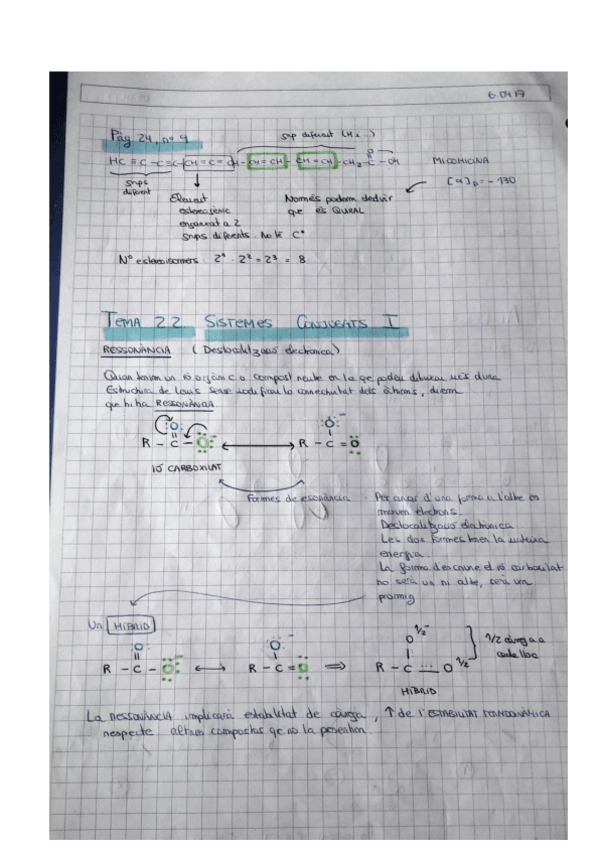 6.04.17
Pàg 24, nº 9
Snp diferent (Hz ...)
HC ≡ C - C ≡ C - CH = C = CH - CH = CH - CH = CH - CH2 - C - OH
O
MICOMICINA
Snps
diferent
Element
estereogènic
enganxat a 2
Snps diferents. No té C*
Només podem deduir
que és QUIRAL
[α]D = -130
Nº estereoisomers: 2² = 2³ = 8
TEMA 22 SISTEMES CONJUGATS I
RESSONÀNCIA (Deslocalització electrònica)
Quan tenim un ió orgànic o compost neutre en la qe podeu dibuixar més d'una
Estructura de Lewis sense modificar la connectivitat dels àtoms, diem
que hi ha RESSONÀNCIA
R - C - O ⟷ R - C = O
IÓ CARBOXILAT
Formes de resonància
Per anar d'una forma a l'altre es
mouen electrons.
Deslocalització electrònica
Les dos formes tenen la mateixa
energia.
La forma descriure el ió carboxilat
no serà un ni altre, serà un
promig
Un HÍBRID
R - C - O ⟷ R - C = O ⟹ R - C ... O ½-
O ½-
1/2 càrrega a
cada lloc
HÍBRID
La RESSONÀNCIA implicarà estabilitat de càrrega, ↑ de l'ESTABILITAT TERMODINÀMICA
respecte altres compostos qe no la presentin.